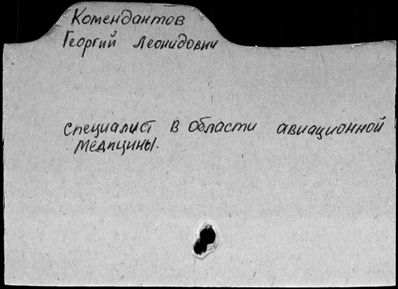 Комендантов
Георгий Леонидович
Специалист в области авиационной
медицины.